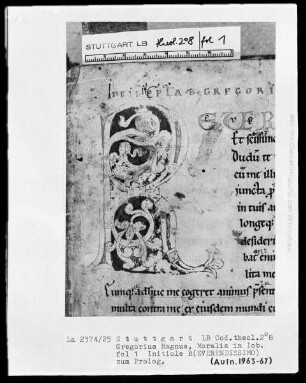 STUTTGART LB theol.2°8 fol 1
Incipit EPLA B GREGORI
REVER
Et sc̄issim
Dudum te
cum me ill
juncta p
in tuis a
longeq;
desideri
bat enu
lita me
Cumq; adhuc me cogeret animus p̄sen
multa contra me ex eiusdem mundi c
La 2374/25 Stuttgart LB Cod.theol.2°8
Gregorius Magnus, Moralia in Iob.
fol 1 Initiale R(EVERENDISSIMO)
zum Prolog. (Aufn.1963-67)